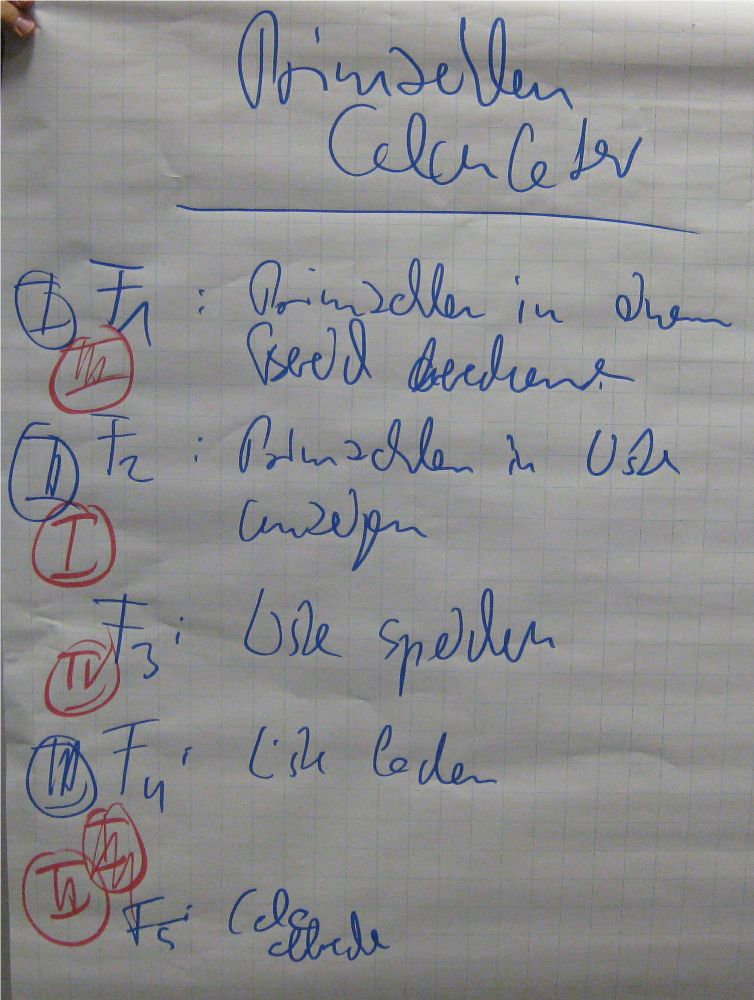 Primzahlen
Calculator
I F1 : Primzahlen in einem
III Bereich berechnen
II F2 : Primzahlen in Liste
I anzeigen
F3 : Liste speichern
IV
III F4 : Liste laden
II
F5 : Calc